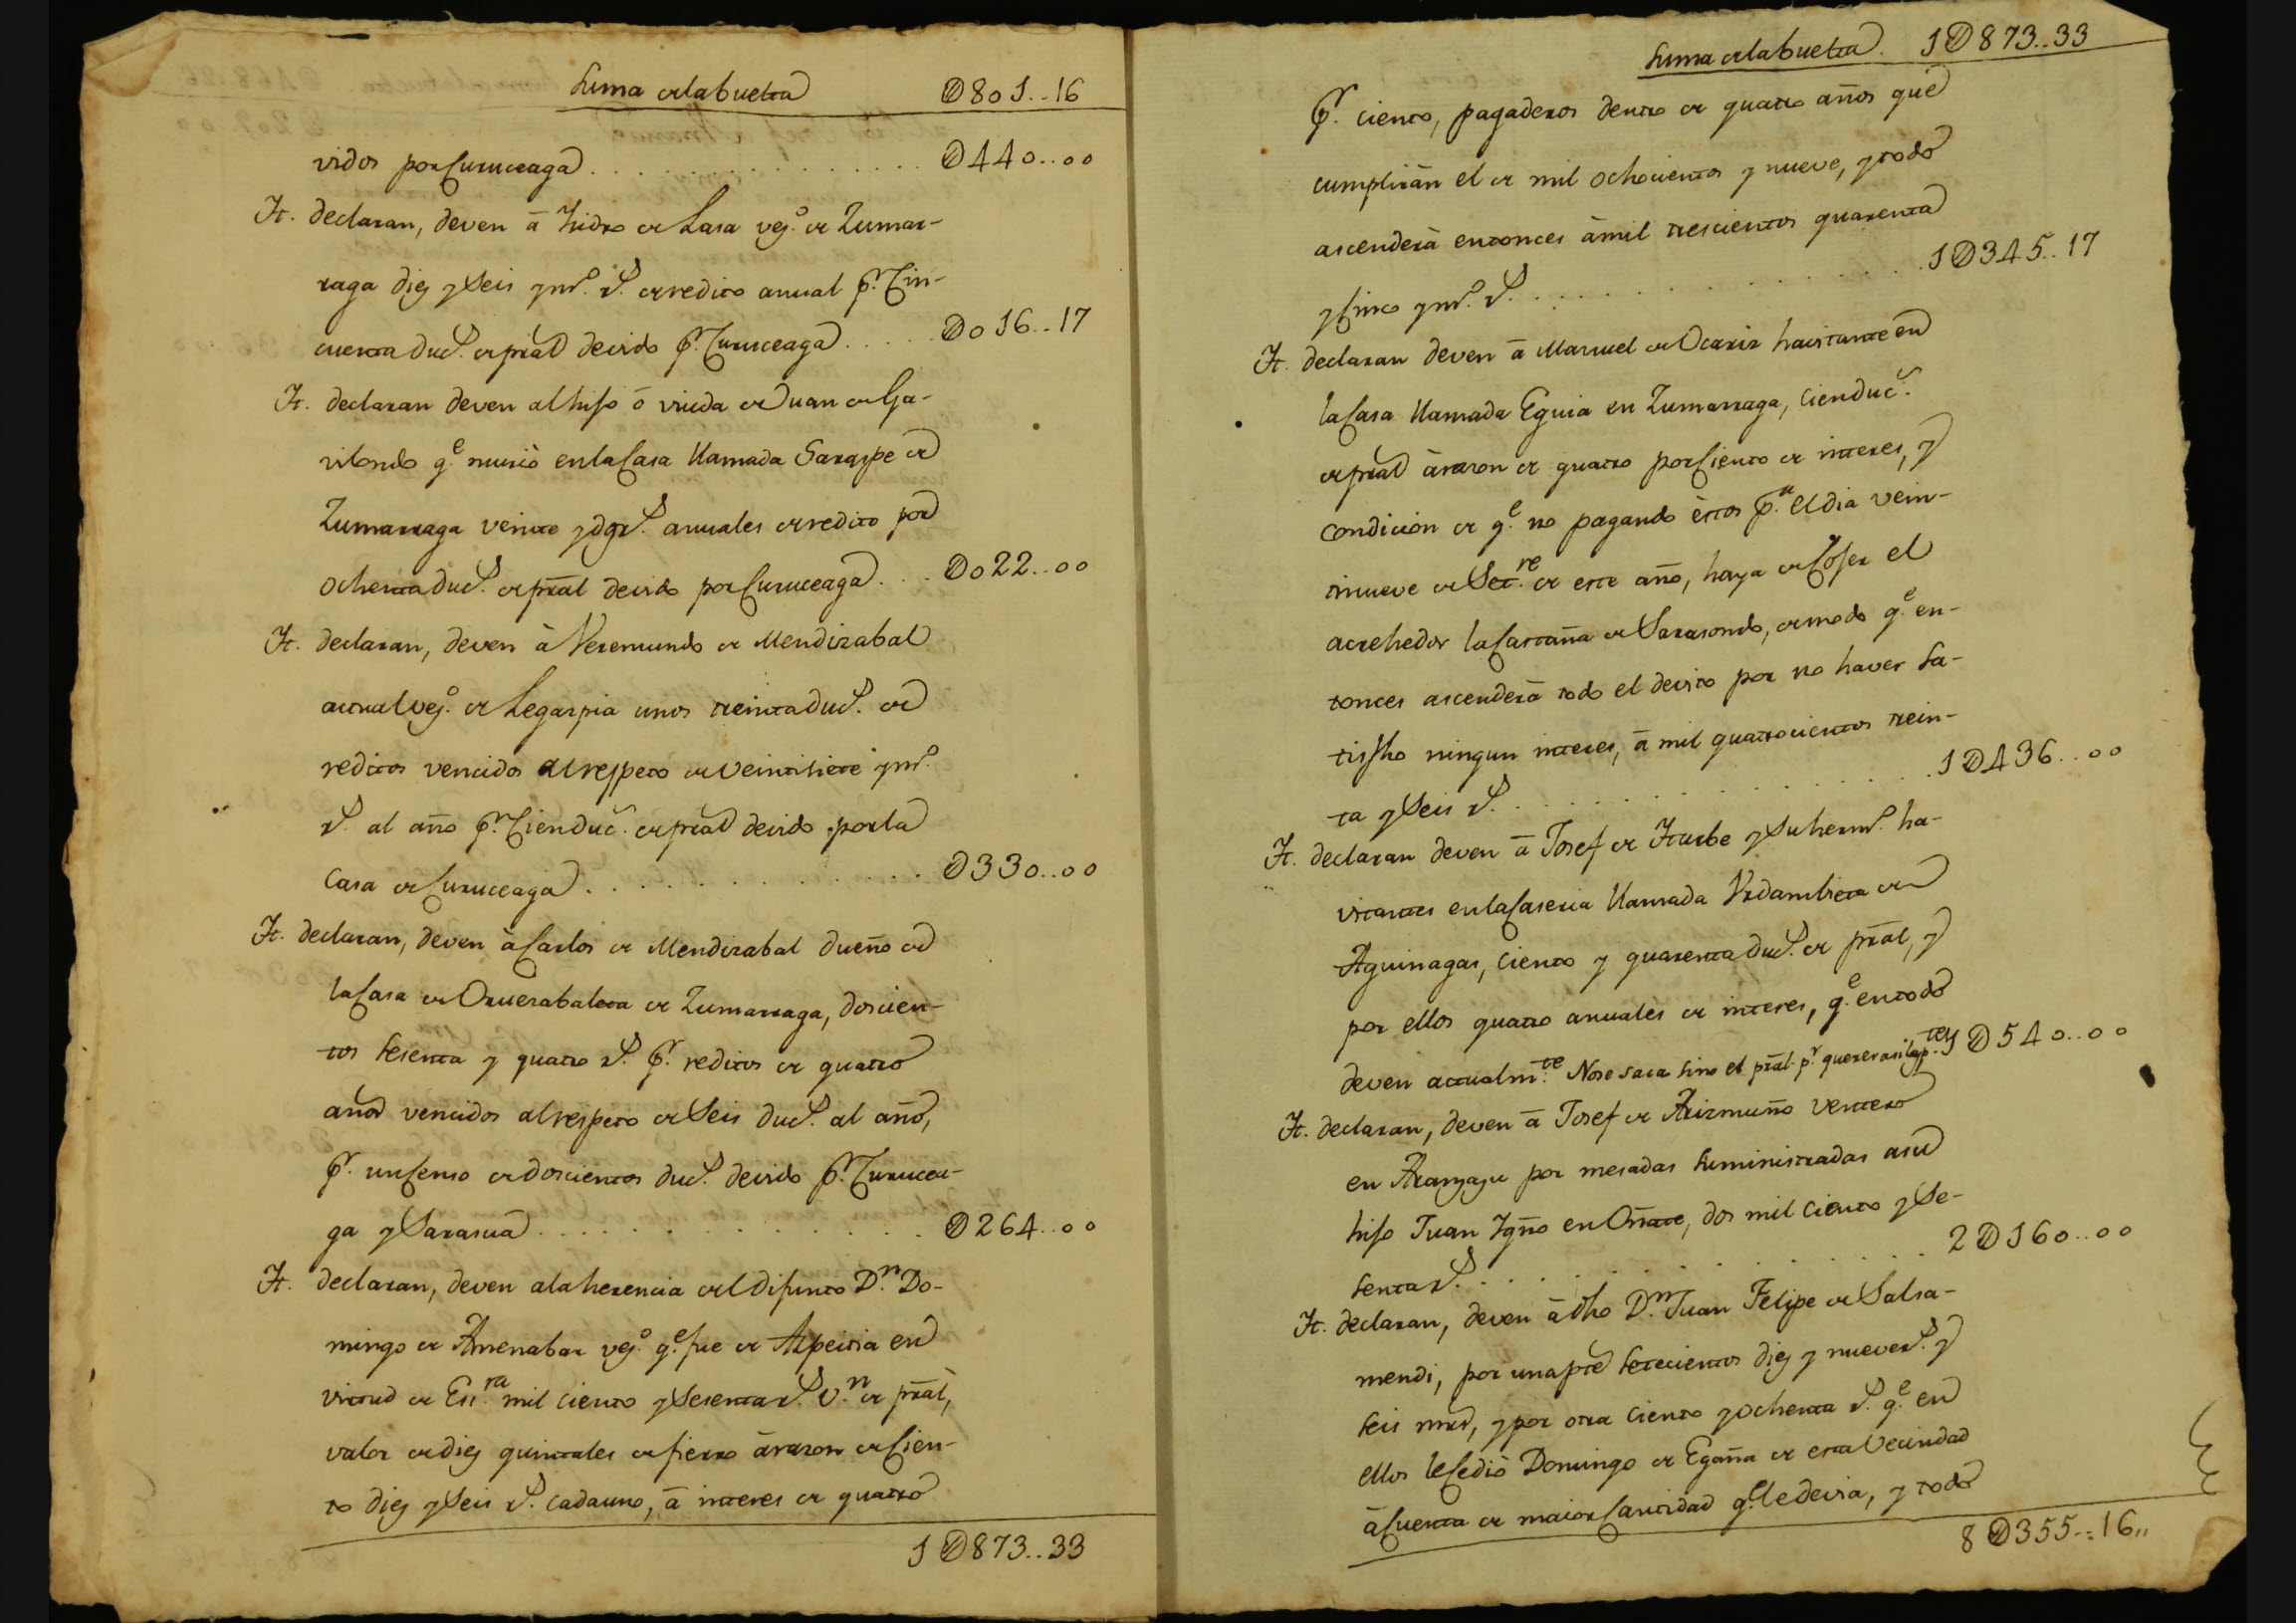 Suma de la buelta D801..16
vidos por Curuceaga . . . . . D440..00
It. declaran, deven à Isidro de Lasa vezº. de Zumar-
raga diez y seis y mº. rˢ. de redito anual pʳ. Cin-
cuenta ducˢ. de pral devido pʳ. Curuceaga . . . . D016..17
It. declaran deven al hijo ó viuda de Juan de Ga-
vilondo qᵉ. murió en la Casa llamada Saraspe de
Zumarraga veinte y dos rˢ. anuales de redito por
ochenta ducˢ. de pral devido por Curuceaga . . . D022..00
It. declaran, deven à Veremundo de Mendizabal
actual vezº. de Legazpia unos treinta ducˢ. de
reditos vencidos al respeto de veintisiete y mº.
rˢ. al año pʳ. Cien duc. de pral devido por la
Casa de Curuceaga . . . . . D330..00
It. declaran, deven à Carlos de Mendizabal dueño de
la Casa de Oruesabaleta de Zumarraga, doscien-
tos sesenta y quatro rˢ. pʳ. reditos de quatro
años vencidos al respeto de Seis ducˢ. al año,
pʳ. un Censo de doscientos ducˢ. devido pʳ. Curucea-
ga y Sarasua . . . . . D264..00
It. declaran, deven a la herencia del difunto Dⁿ. Do-
mingo de Amenabar vezº. qᵉ. fue de Azpeitia en
virtud de Esʳᵃ. mil ciento y Sesenta rˢ. vⁿ. de pral,
valor de diez quintales de fierro à razon de Cien-
to diez y Seis rˢ. cada uno, à interes de quatro
1D873..33
Suma de la buelta. 1D873..33
pʳ. ciento, pagaderos dentro de quatro años que
cumplirán el de mil ochocientos y nueve, y todo
ascenderà entonces à mil trescientos quarenta
y Cinco y mº. rˢ. . . . . . 1D345..17
It. declaran deven à Manuel de Ocariz havitante en
la Casa llamada Eguia en Zumarraga, cien duc.
de pral à razon de quatro por Ciento de interes, y
condicion de qᵉ. no pagando èstos pᵃ. el dia vein-
tinueve de Setʳᵉ. de este año, haya de Coser el
acrehedor la Castaña de Sarasondo, de modo qᵉ. en-
tonces ascenderà todo el devito por no haver Sa-
tisfho ningun interes, à mil quatrocientos trein-
ta y Seis rˢ. . . . . . 1D436..00
It. declaran deven à Josef de Iturbe y Su hermº. ha-
vitantes en la Caseria llamada Urdambieta de
Aguinagas, ciento y quarenta ducˢ. de pral, y
por ellos quatro anuales de interes, qᵉ. en todo
deven actualmᵗᵉ. No se saca sino el pral pʳ. querer asi las pᵗᵉˢ. 1D540..00
It. declaran, deven à Josef de Arizmuño ventero
en Aranzazu por mesadas suministradas a su
hijo Juan Igño en Oñate, dos mil ciento y Se-
senta rˢ. . . . . . 2D160..00
It. declaran, deven à dho Dⁿ. Juan Felipe de Salsa-
mendi, por una pte setecientos diez y nueve rˢ. y
seis mrs, y por otra ciento y ochenta rˢ. qᵉ. en
ellos le Cediò Domingo de Egaña de esta Vecindad
à Cuenta de maior Cantidad qᵉ. le devia, y todo
8D355..16,,